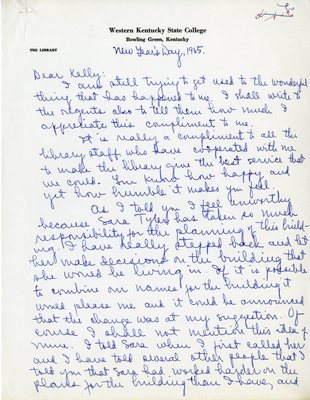 Western Kentucky State College
Bowling Green, Kentucky
THE LIBRARY
New Year's Day, 1965.
Dear Kelly:
I am still trying to get used to the wonderful
thing that has happened to me. I shall write to
the regents also to tell them how much I
appreciate this compliment to me.
It is really a compliment to all the
library staff who have cooperated with me
to make the library give the best service that
we could. You know how happy and
yet how humble it makes you feel.
As I told you I feel unworthy
because Sara Tyler has taken so much
responsibility for the planning of this build-
ing. I have really stepped back and let
her make decisions on the building that
she would be living in. If it is possible
to combine our names for the building it
would please me and it could be announced
that the change was at my suggestion. Of
course I shall not mention this idea of
mine. I told Sara when I first called her
and I have told several other people that I
told you that Sara had worked harder on the
plans for the building than I have, and